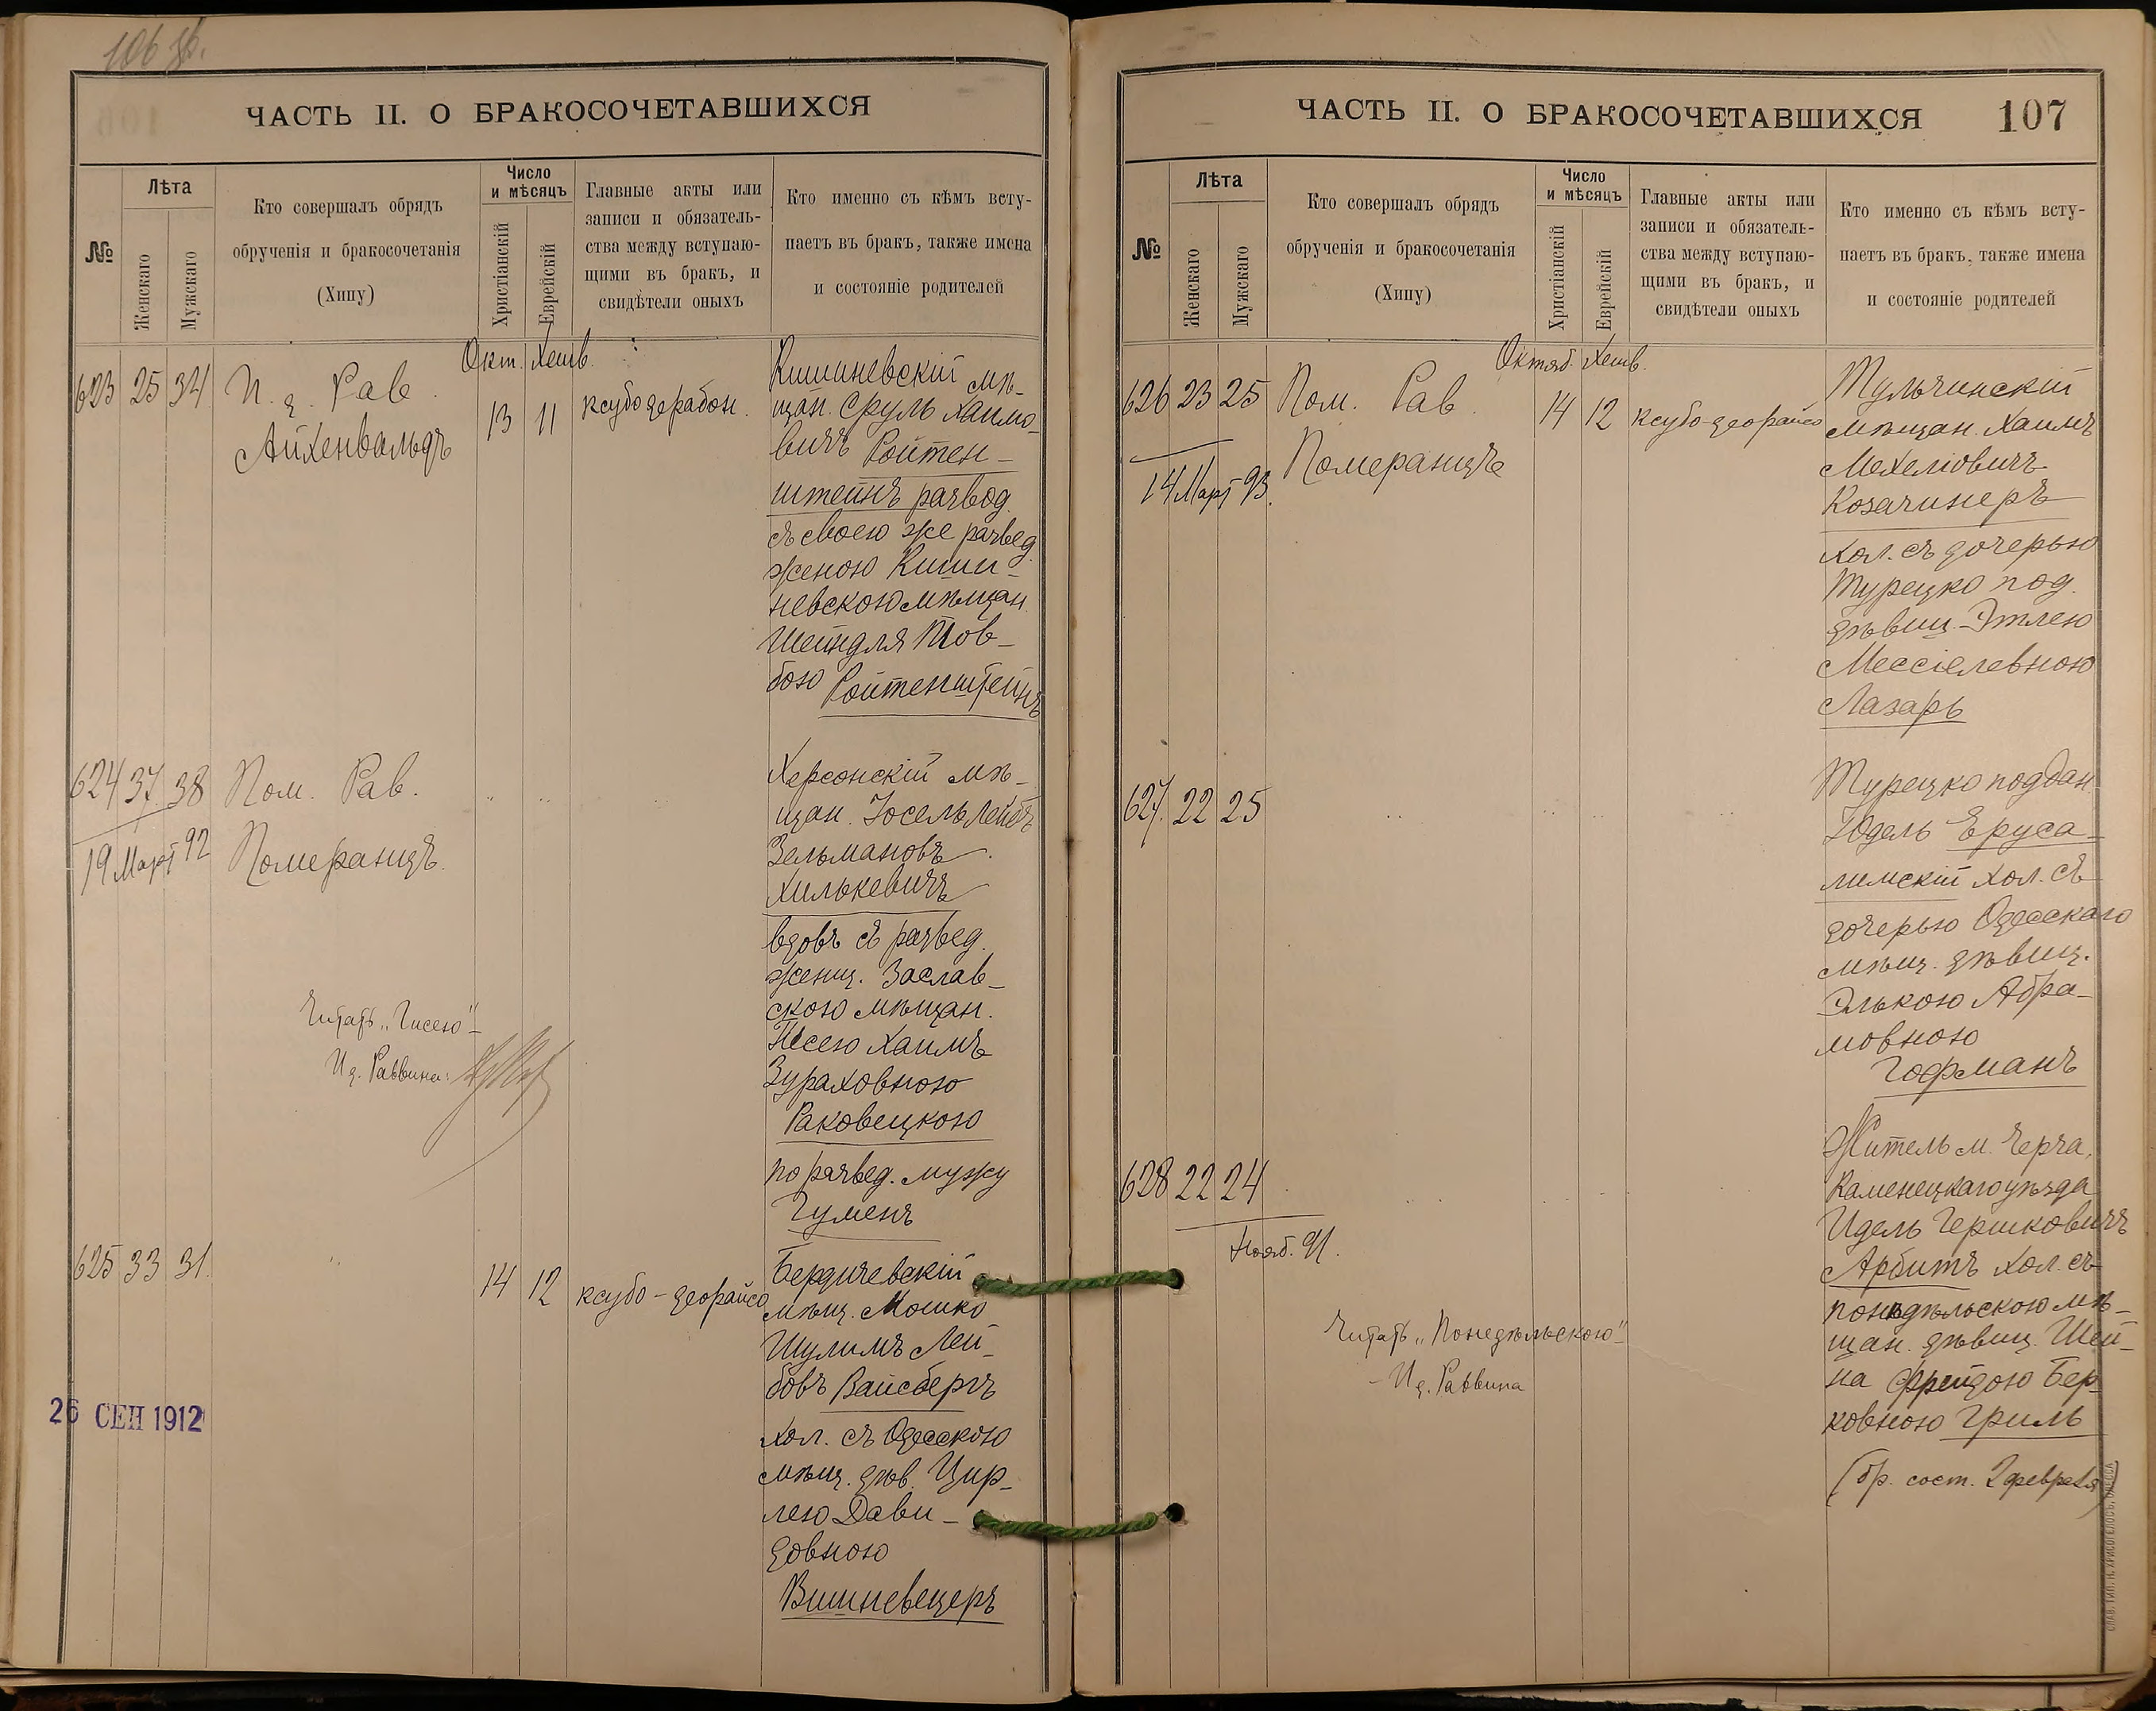 106 об.
ЧАСТЬ II. О БРАКОСОЧЕТАВШИХСЯ
№
Лѣта
Женскаго
Мужскаго
Кто совершалъ обрядъ
обрученія и бракосочетанія
(Хипу)
Число
и мѣсяцъ
Христіанскій
Еврейскій
Главные акты или
записи и обязатель-
ства между вступаю-
щими въ бракъ, и
свидѣтели оныхъ
Кто именно съ кѣмъ всту-
паетъ въ бракъ, также имена
и состояніе родителей
Окт. Хешв.
623 25 34 И. д. Рав.
Айхенвальдъ
13 11 ксубо дерабон.
Кишиневскій мѣ-
щан. Сруль Хаимо-
вичъ Ройтен-
штейнъ развод.
съ своею же развед.
женою Киши-
невскою мѣщан.
Шейндля Тов-
бою Ройтенштейнъ
624 37 38 Пом. Рав.
19 Март 92 Померанцъ.
Херсонскій мѣ-
щан. Іосель Лейбъ
Зельмановъ
Хилькевичъ
вдовъ съ развед.
женщ. Заслав-
скою мѣщан.
Песею Хаимъ
Зураховною
Раковецкою
по развед. мужу
Гуменъ
Читать „Гисею"-
И д. Раввина:
625 33 31.
14 12 ксубо-деорайсо
Бердичевскій
мѣщ. Мошко
Шулимъ Лей-
бовъ Вайсбергъ
Хол. съ Одесскою
мѣщ. дѣв. Цир-
лею Дави-
довною
Вишневецеръ
26 СЕН 1912
ЧАСТЬ II. О БРАКОСОЧЕТАВШИХСЯ 107
№
Лѣта
Женскаго
Мужскаго
Кто совершалъ обрядъ
обрученія и бракосочетанія
(Хипу)
Число
и мѣсяцъ
Христіанскій
Еврейскій
Главные акты или
записи и обязатель-
ства между вступаю-
щими въ бракъ, и
свидѣтели оныхъ
Кто именно съ кѣмъ всту-
паетъ въ бракъ, также имена
и состояніе родителей
Октяб. Хешв.
626 23 25 Пом. Рав.
14 Март 93. Померанцъ
14 12 ксубо-деорайсо
Тульчинскій
мѣщан. Хаимъ
Мехеліовичъ
Козачинеръ
хол. съ дочерью
Турецко под.
дѣвиц. Этлею
Мессіелевною
Лазарь
627. 22 25
Турецко поддан.
Юдель Еруса-
лимскій хол. съ
дочерью Одесскаго
мѣщ. дѣвиц.
Элькою Абра-
мовною
Гофманъ
628 22 24
Нояб. 91.
Житель м. Черча,
Каменецкаго уѣзда
Идель Гершковичъ
Арбитъ хол. съ
понедѣльскою мѣ-
щан. дѣвиц. Шей-
на Фрейдою Бер-
ковною Гриль
(бр. сост. 2 февраля)
Читать „Понедѣльскою"
- И д. Раввина